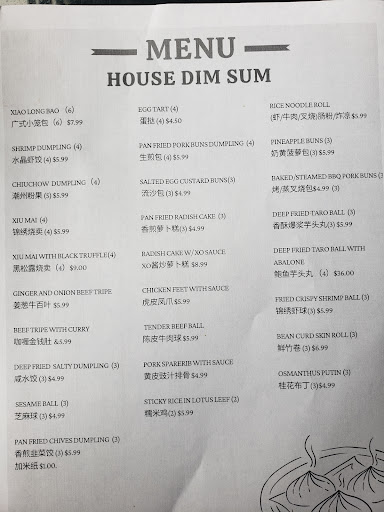 MENU
HOUSE DIM SUM
XIAO LONG BAO （6）
广式小笼包（6）$7.99
SHRIMP DUMPLING (4)
水晶虾饺 (4) $5.99
CHIUCHOW DUMPLING （4）
潮州粉果 (5) $5.99
XIU MAI (4)
锦绣烧卖 (4) $5.99
XIU MAI WITH BLACK TRUFFLE(4)
黑松露烧卖 （4） $9.00
GINGER AND ONION BEEF TRIPE
姜葱牛百叶 $5.99
BEEF TRIPE WITH CURRY
咖喱金钱肚 &5.99
DEEP FRIED SALTY DUMPLING (3)
咸水饺 (3) $4.99
SESAME BALL (3)
芝麻球 (3) $4.99
PAN FRIED CHIVES DUMPLING (3)
香煎韭菜饺 (3) $5.99
加米纸 $1.00.
EGG TART (4)
蛋挞 (4) $4.50
PAN FRIED PORK BUNS DUMPLING (4)
生煎包 (4) $5.99
SALTED EGG CUSTARD BUNS(3)
流沙包 (3) $4.99
PAN FRIED RADISH CAKE (3)
香煎萝卜糕(3) $4.99
RADISH CAKE W/ XO SAUCE
XO酱炒萝卜糕 $8.99
CHICKEN FEET WITH SAUCE
虎皮凤爪 $5.99
TENDER BEEF BALL
陈皮牛肉球 $5.99
PORK SPARERIB WITH SAUCE
黄皮豉汁排骨 $4.99
STICKY RICE IN LOTUS LEEF (2)
糯米鸡(2) $5.99
RICE NOODLE ROLL
(虾/牛肉/叉烧)肠粉/炸凉 $5.99
PINEAPPLE BUNS (3)
奶黄菠萝包(3) $5.99
BAKED/STEAMED BBQ PORK BUNS (3)
烤/蒸叉烧包$4.99 (3)
DEEP FRIED TARO BALL (3)
香酥爆浆芋头丸(3) $5.99
DEEP FRIED TARO BALL WITH
ABALONE
鲍鱼芋头丸 （4） $36.00
FRIED CRISPY SHRIMP BALL (3)
锦绣虾球(3) $5.99
BEAN CURD SKIN ROLL (3)
鲜竹卷 (3) $6.99
OSMANTHUS PUTIN (3)
桂花布丁(3)$4.99